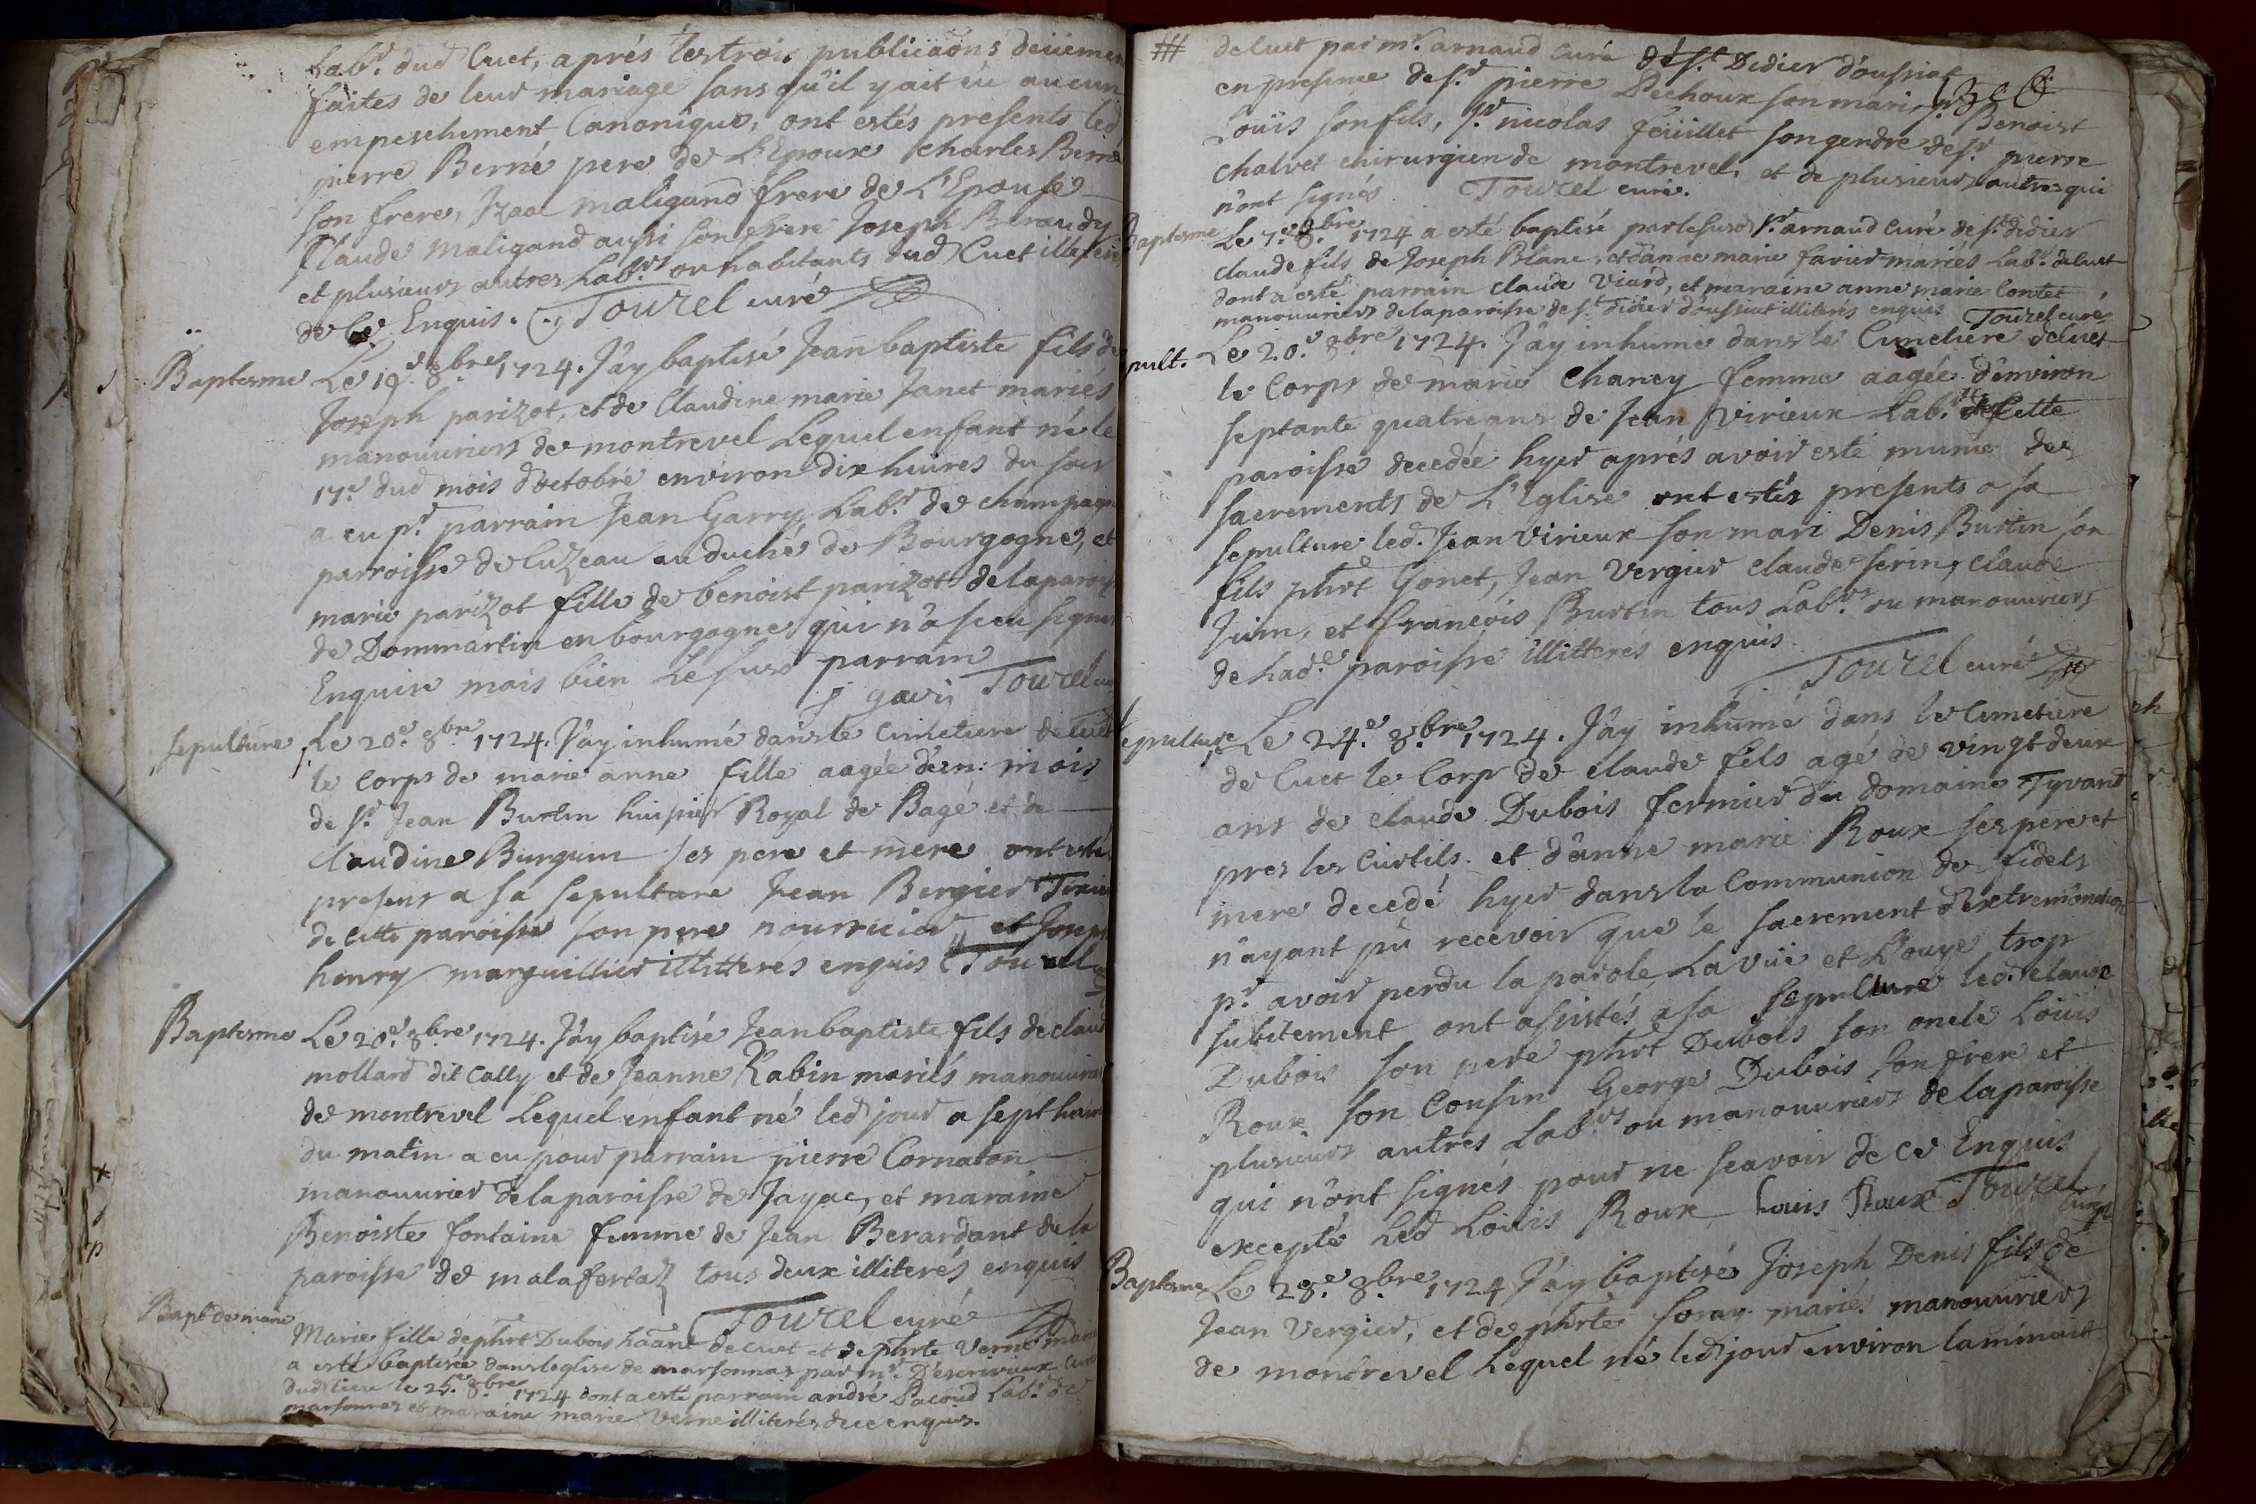 Labr. dud Cuet, aprés les trois publicaõns deüemen
faites de leur mariage sans qu'il y ait eu aucun
empeschement Canonique, ont estés presents led
pierre Berné pere de L'Epoux Charles Berné
son frere, Izaac maligand frere de L'Epouse
Claude maligand aussi son frere Joseph Beraudy
et plusieurs autres Labrs ou habitants dud Cuet illiterés
de ce Enquis. Tourel curé
Baptesme Le 19e. 8bre 1724. J'ay baptisé Jean baptiste fils de
Joseph parizot, et de Claudine marie Janet mariés
manouuriers de montrevel Lequel enfant né le
17e. dud mois d'octobre environ dix heures du soir
a eu pr. parrain Jean Garry Labr. de champagne
parroisse de Cuzeau au duché de Bourgogne, et
marie parizot fille de benoist parizot de la parois
de Dommartin en bourgogne qui n'a sceu signer
Enquise mais bien Le susd parrain
Tourel
sepulture Le 20e. 8bre 1724. J'ay inhumé dans le cimetiere de Cuet
le corps de marie anne fille aagée d'un mois
de sr. Jean Burtin huissier Royal de Bagé et de
Claudine Burguin ses pere et mere ont esté
presens a sa sepulture Jean Bergier
de cette paroisse son pere nourricier, et Joseph
henry marguillier illitteres enquis Tourel
Baptesme Le 20e. 8bre 1724. J'ay baptisé Jean baptiste fils de claude
mollard dit Cally et de Jeanne Rabin mariés manouuriers
de montrevel Lequel enfant né led jour a sept heures
du matin a eu pour parrain pierre Cornaton
manouurier de la paroisse de Jayac, et maraine
Benoiste fontaine femme de Jean Berardant de la
paroisse de malafertaz tous deux illiterés enquis
Tourel curé
Bapt de marie
Marie fille de phrt Dubois de cuet et de phrte Verne
a esté baptisée dans l'eglise de marsonnas par mr. Descrivieux Curé
dud lieu le 25e. 8bre 1724 dont a esté parrain andré Pacoud Labr. de
marsonnas et maraine marie Verne illiterés de ce enquis.
# de Cuet par mr. arnaud curé de st. Didier d'oussiat
en presence de sr. pierre Pechoux son mari,
Loüis son fils, sr. nicolas feüillet son gendre de sr. Benoist
chalvet chirurgien de montrevel, et de plusieurs autres qui
n'ont signés Tourel curé.
Baptesme Le 7e. 8bre 1724 a esté baptisé par le susd sr. arnaud Curé de st. didier
claude fils de Joseph Blanc, et d'anne marie favier mariés Labrs de Cuet
dont a esté parrain claude Viard, et maraine anne marie Contet
manouuriers de la paroisse de st. Didier d'oussiat illiterés enquis Tourel curé
pult. Le 20e. 8bre 1724. J'ay inhumé dans le Cimetiere de Cuet
le Corps de marie Chaney femme aagée d'environ
septante quatre ans de Jean Virieux Labr. de Cette
paroisse decedée hyer aprés avoir esté munie des
sacrements de L'Eglise ont estés présents a sa
sepulture led. Jean Virieux son mari Denis Burtin son
fils phrt Gonet, Jean Vergier Claude serin, Claude
Juin, et francois Burtin tous Labrs. ou manouuriers
de lad.e paroisse illitterés enquis
Tourel curé
epulture Le 24e. 8.bre 1724. J'ay inhumé dans le Cimetiere
de Cuet le Corps de claude fils agé de vingt deux
ans de claude Dubois fermier du domaine Tyvand
pres les Curtils. et d'anne marie Roux ses pere et
mere decedé hyer dans la Communion de fidels
n'ayant pû recevoir que le sacrement d'Extremonction
pr. avoir perdu la parole, La vüe et L'ouye trop
subitement ont assistés a sa sepulture led. claude
Dubois son pere phrt Dubois son oncle Loüis
Roux son Cousin George Dubois son frere et
plusieurs autres Labrs ou manouuriers de la paroisse
qui n'ont signés pour ne scavoir de ce Enquis
excepté Led Loüis Roux Louis Roux Tourel
curé
Baptesme Le 28e. 8bre 1724 J'ay baptisé Joseph Denis fils de
Jean Vergier, et de phrte mariés manouuriers
de montrevel Lequel né led jour environ la minuit